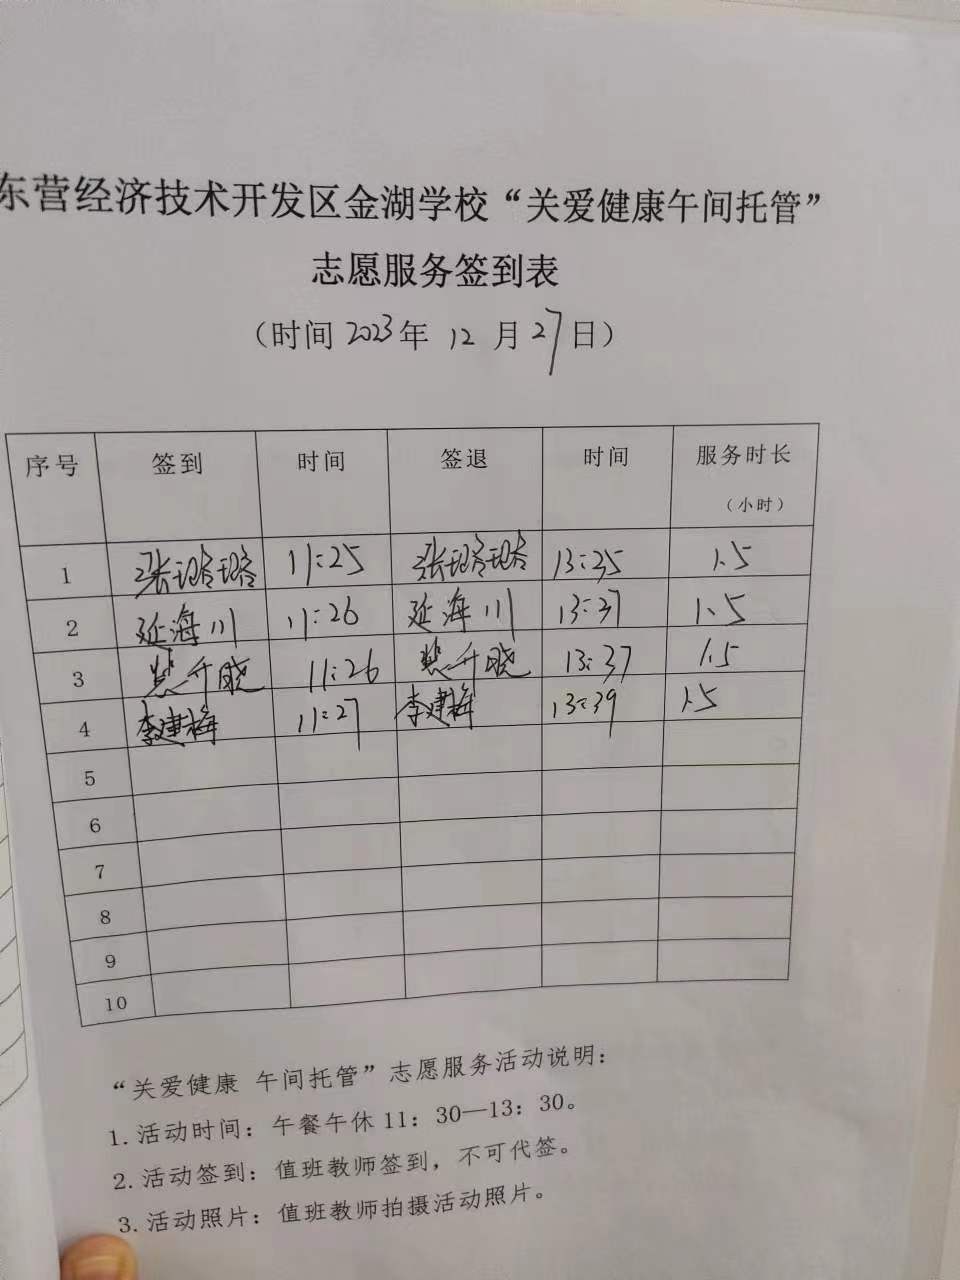 东营经济技术开发区金湖学校“关爱健康午间托管”
志愿服务签到表
（时间 2023年 12 月 27日）
序号 签到 时间 签退 时间 服务时长
（小时）
1 张璐璐 11:25 张璐璐 13:35 1.5
2 延海川 11:26 延海川 13:37 1.5
3 11:26 13:37 1.5
4 李建梅 11:27 李建梅 13:39 1.5
5
6
7
8
9
10
“关爱健康 午间托管”志愿服务活动说明：
1. 活动时间：午餐午休 11：30—13：30。
2. 活动签到：值班教师签到，不可代签。
3. 活动照片：值班教师拍摄活动照片。